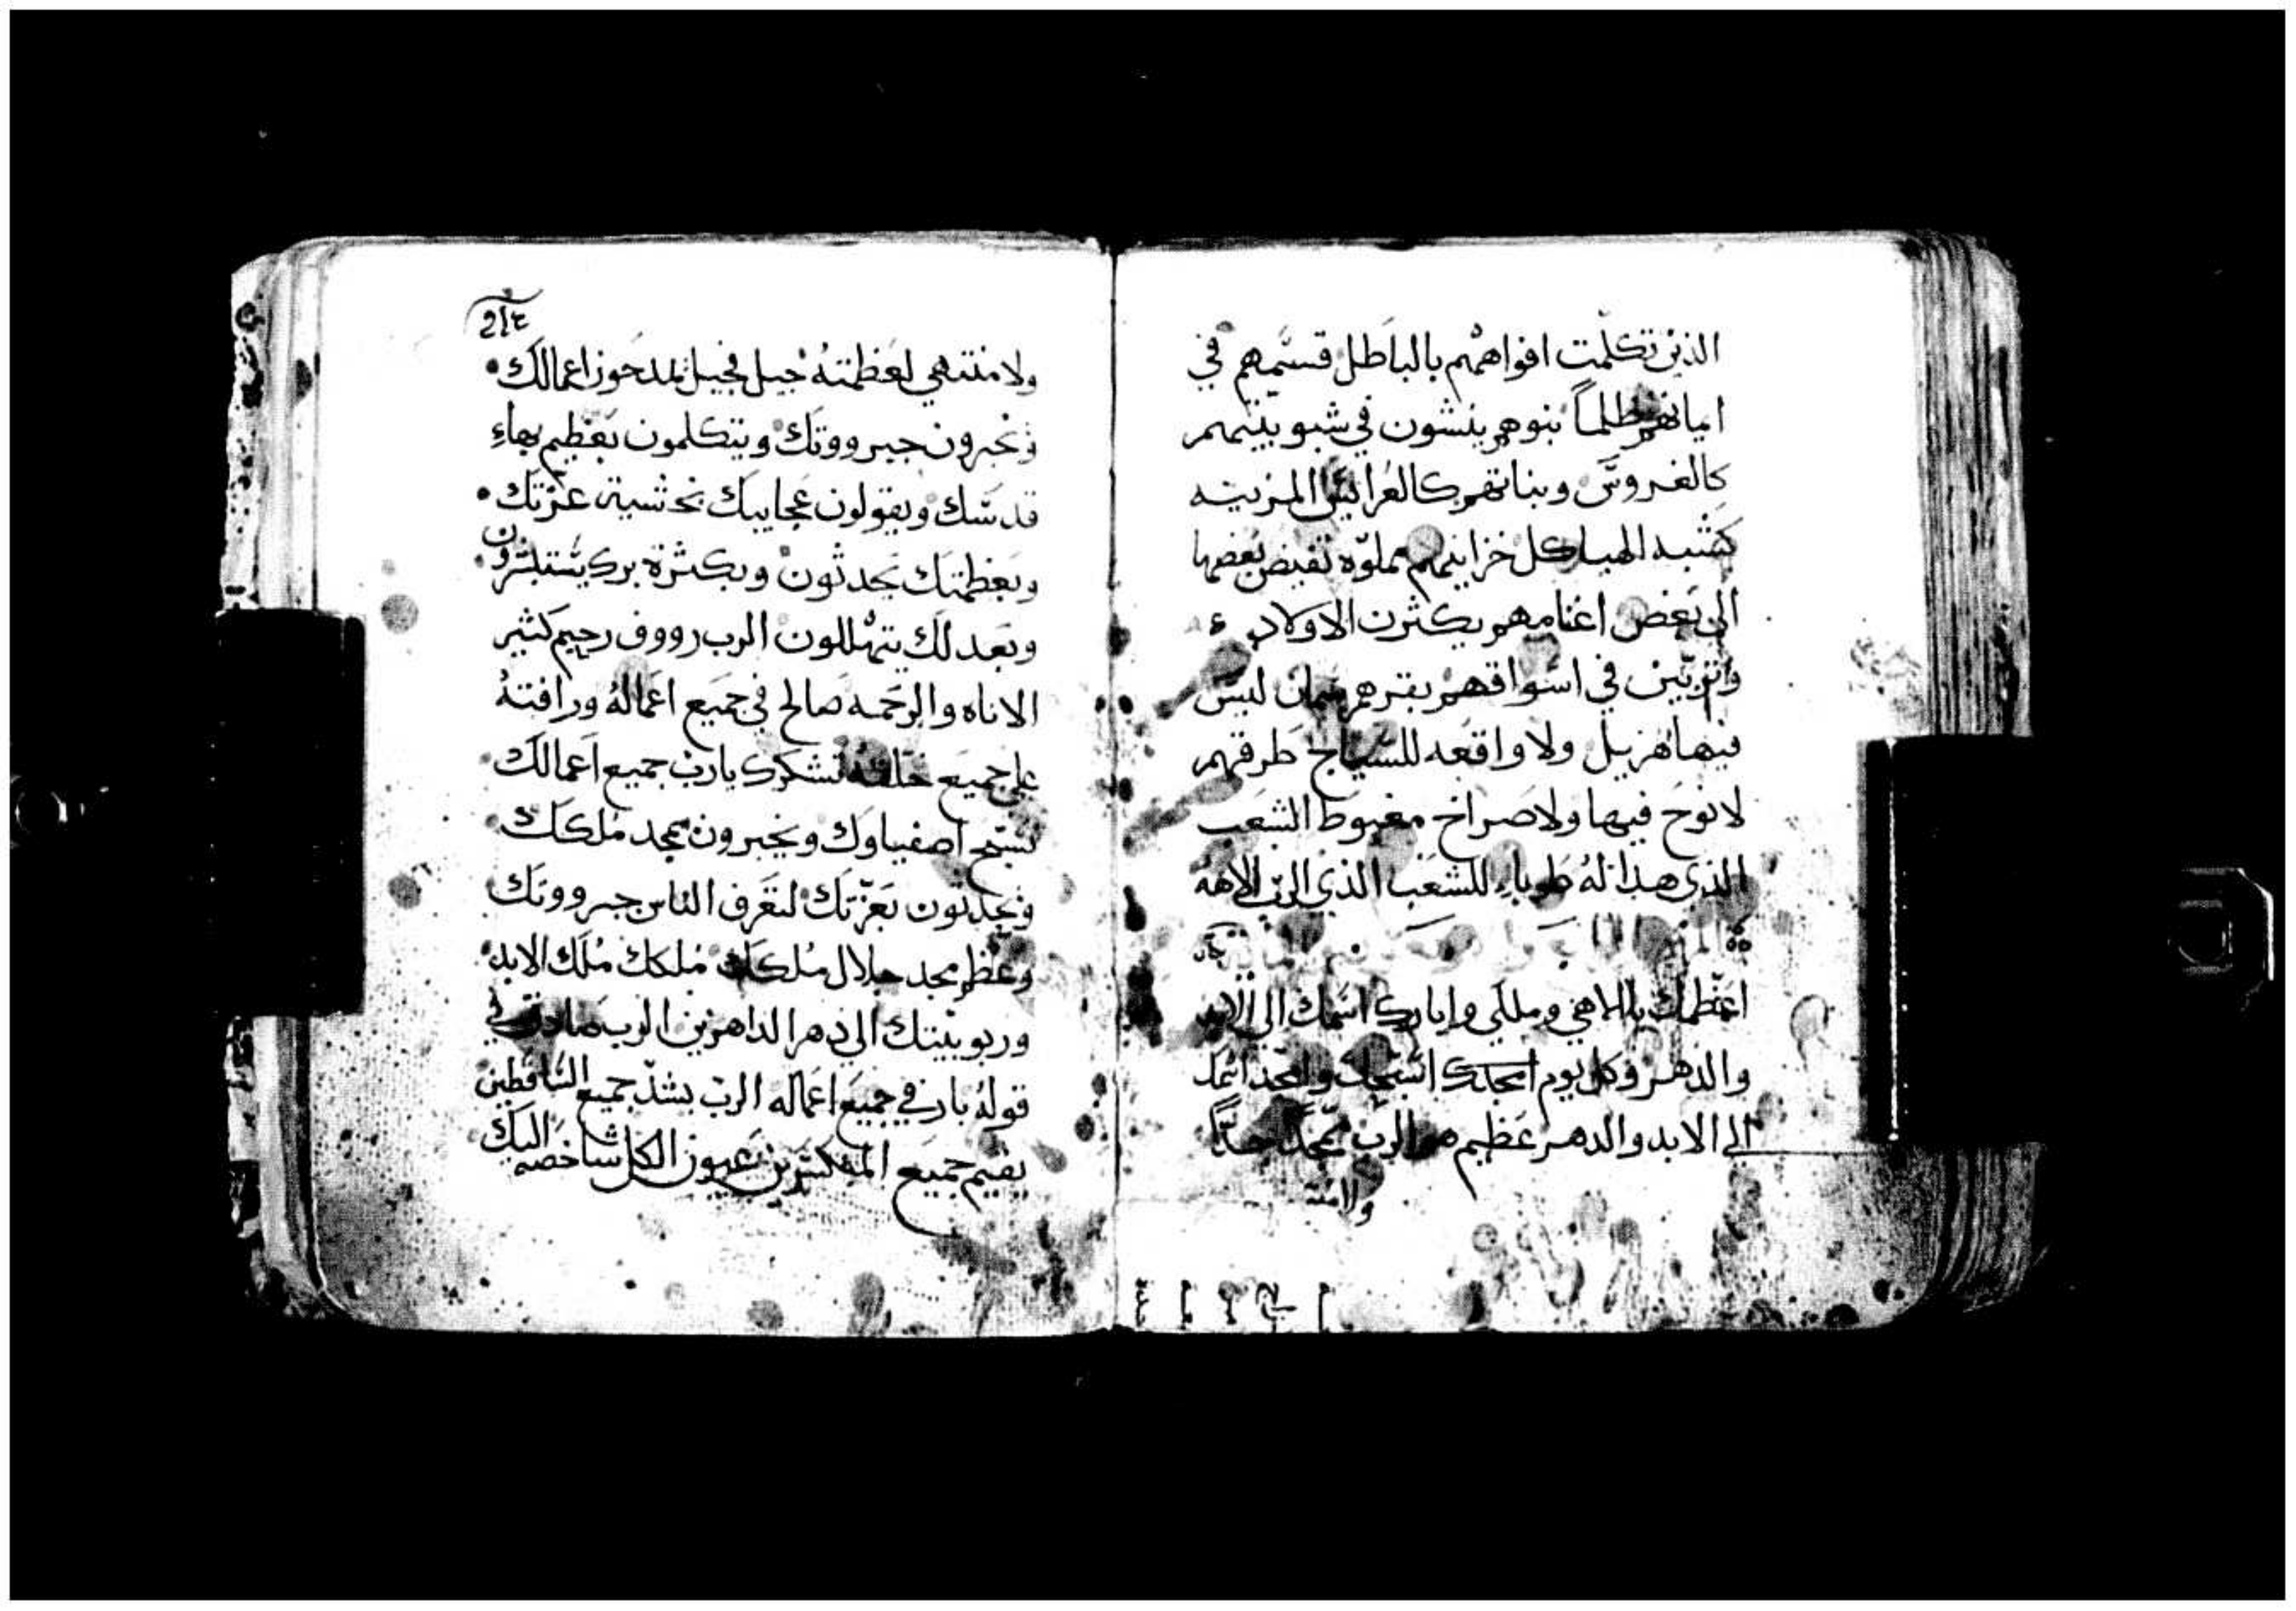 الذين تكلمت افواههم بالباطل قسمهم في
ايمانهم ظلماً بنوهم ينشون في شبوبيتهم
كالغروس وبناتهم كالعرايس المزينه
كشبه الهياكل خزاينهم مملوه تفيض بعضها
الى بعض اغنامهم يكثرن الاولاد
في اسواقهم بقرهم سمان ليس
فيها هزيل ولا واقعه للسياج طرقهم
لا نوح فيها ولا صراخ مغبوط الشعب
الذى هذا له طوباء للشعب الذي الرب الاهه
اعظمك يا الاهي وملكي وابارك اسمك الى الابد
والدهر وكل يوم اسبحك وامجد اسمك
الى الابد والدهر عظيم هو الرب ممجد جداً
ولا منته
ولا منتهي لعظمته جيل فجيل يمدحون اعمالك
ويخبرون جبرووتك ويتكلمون بعظيم بهاءِ
قدسك ويقولون عجايبك نخشية عزتك
وبعظمتك يحدثون وبكثرة برك يستبشرون
وبعدلك يتهللون الرب رووف رحيم كثير
الاناه والرحمه صالح في جميع اعماله ورافته
على جميع خلقه تشكرك يارب جميع اعمالك
تسبح اصفياوك ويخبرون بمجد ملكك
ويحدثون بعزتك لتعرف الناس جبرووتك
وعظم مجد جلال ملكك ملكك ملك الابد
وربوبيتك الى دهر الداهرين الرب صادق في
قوله بار في جميع اعماله الرب يشدّ جميع الساقطين
يقيم جميع المنكسرين عيون الكل شاخصه اليك